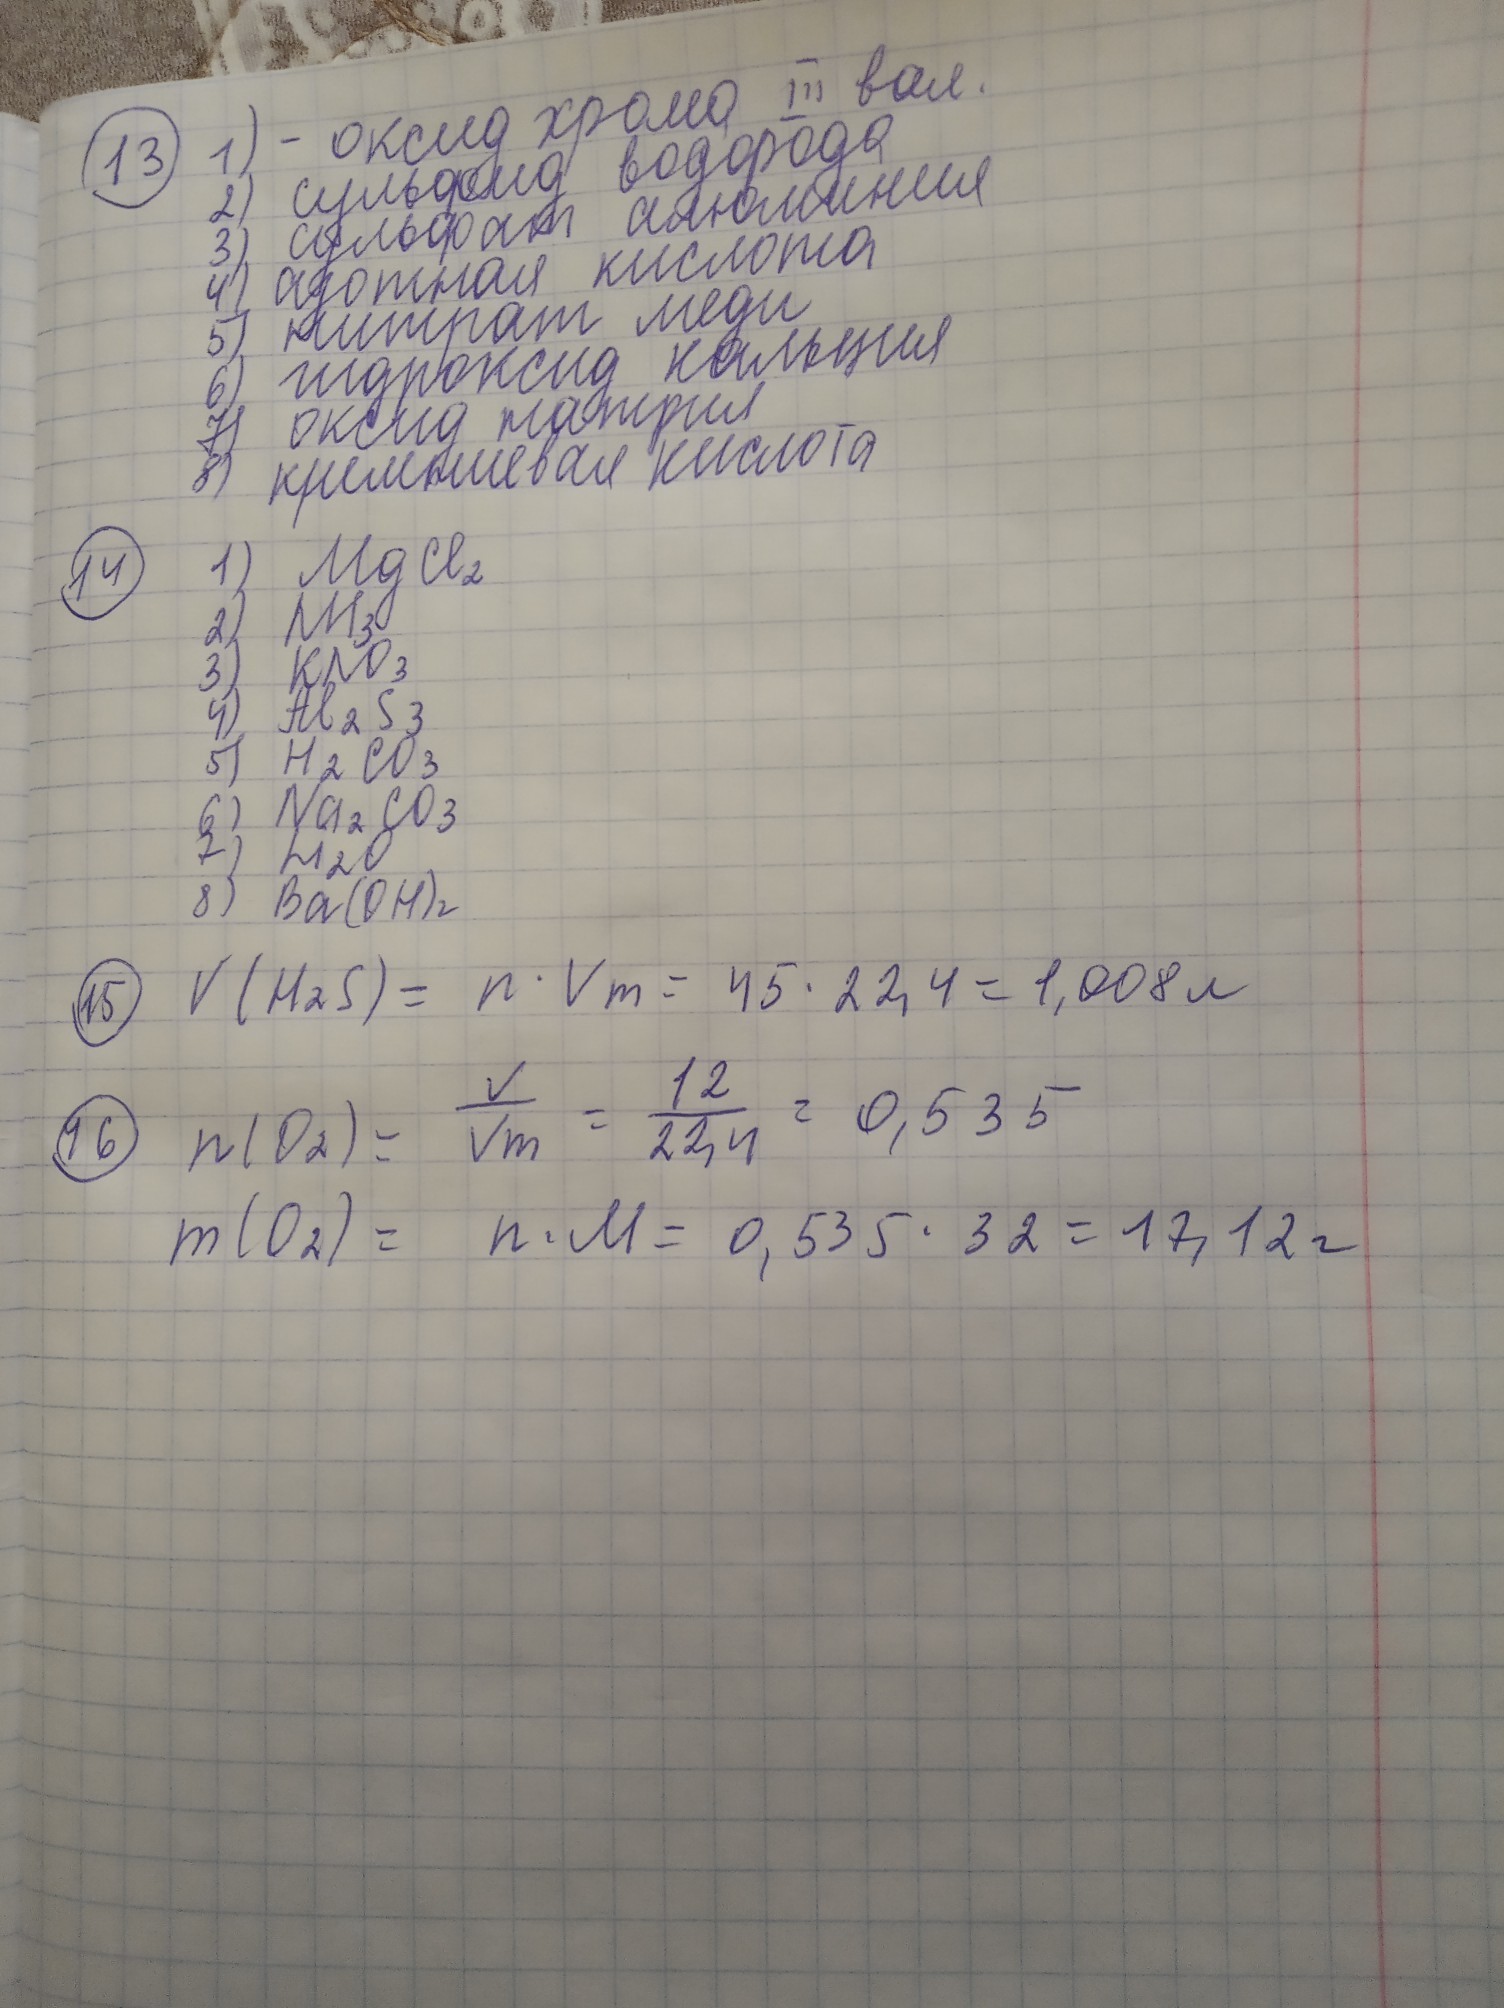 13 1) - оксид хрома III вал.
2) сульфид водорода
3) сульфат алюминия
4) азотная кислота
5) нитрат меди
6) гидроксид кальция
7) оксид натрия
8) кремниевая кислота
14 1) MgCl₂
2) NH₃
3) KNO₃
4) Al₂S₃
5) H₂CO₃
6) Na₂CO₃
7) Li₂O
8) Ba(OH)₂
15 V(H₂S) = n · Vm = 45 · 22,4 = 1,008 л
16 n(O₂) = V/Vm = 12/22,4 = 0,535
m(O₂) = n · M = 0,535 · 32 = 17,12 г